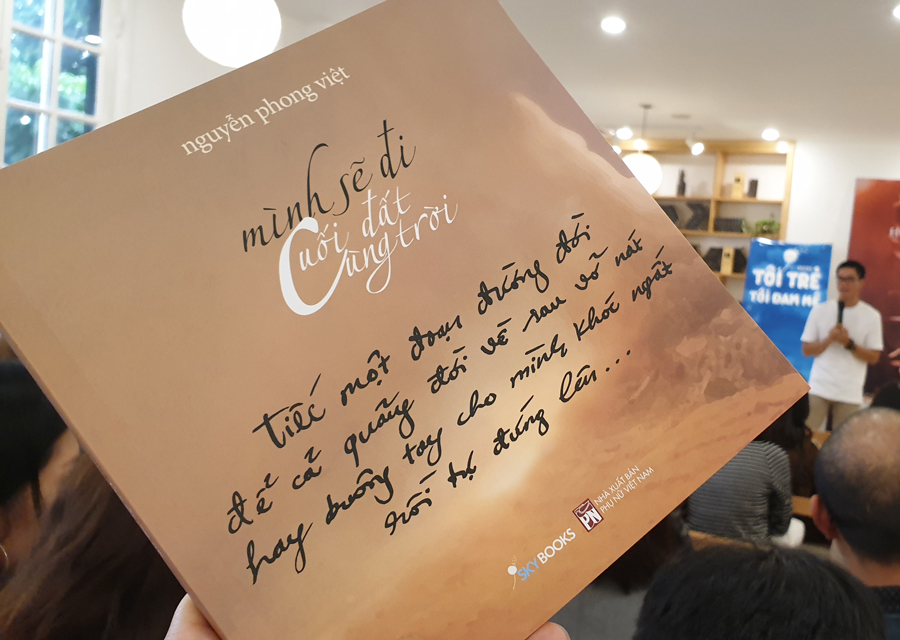 nguyễn phong việt
mình sẽ đi
Cuối đất
Cùng trời
Tiếc một đoạn đường đời
để cả quãng đời về sau vỡ nát
hay buông tay cho mình khóc ngất
rồi tự đứng lên...
SKYBOOKS
PN
NHÀ XUẤT BẢN
PHỤ NỮ VIỆT NAM
TÔI TRẺ
TÔI ĐAM MÊ